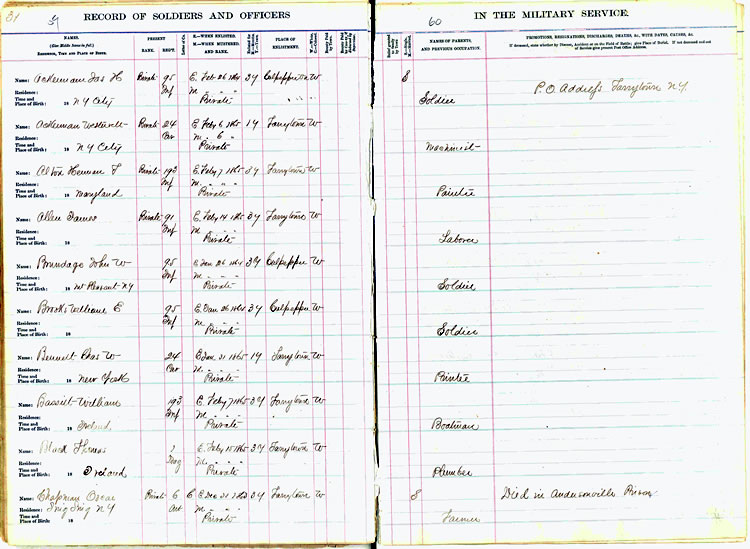 59
RECORD OF SOLDIERS AND OFFICERS
NAMES.
(Give Middle Name in full.)
RESIDENCE, TIME AND PLACE OF BIRTH.
PRESENT
RANK. REG'T.
E.—WHEN ENLISTED.
M.—WHEN MUSTERED,
AND RANK.
PLACE OF
ENLISTMENT.
Name: Ackerman Jas H Private 95 E. Feb 26 1864 3Y Culpepper W
Residence: Inf M
Time and
Place of Birth: 18 N Y City Private
Name: Ackerman Private 24 E. Feby 6 1865 1Y Tarrytown W
Residence: Cav M. " 6 "
Time and
Place of Birth: 18 N Y City Private
Name: Herman F Private 193 E. Feby 7 1865 3Y Tarrytown W
Residence: Inf M. " " "
Time and
Place of Birth: 18 Maryland Private
Name: Allen James Private 91 E. Feby 14 1865 3Y Tarrytown W
Residence: Inf M. " " "
Time and
Place of Birth: 18 Private
Name: Brundage John W 95 E. Jan 26 1864 3Y Culpepper W
Residence: Inf M. " " "
Time and
Place of Birth: 18 Mt Pleasant NY Private
Name: Brooks William E 95 E. Jan 26 1864 3Y Culpepper W
Residence: Inf M. " " "
Time and
Place of Birth: 18 Private
Name: Bennett Chas W 24 E Jan 31 1865 1Y Tarrytown W
Residence: Cav M. " " "
Time and
Place of Birth: 18 New York Private
Name: Bassett William 193 E. Feby 7 1865 3Y Tarrytown W
Residence: Inf M. " " "
Time and
Place of Birth: 18 Ireland Private
Name: Black Thomas E. Feby 15 1865 3Y Tarrytown W
Residence: M. " " "
Time and
Place of Birth: 18 Ireland Private
Name: Chapman Oscar Private 6 E E Dec 21 1863 3Y Tarrytown W
Residence: Sing Sing NY Art M. " " "
Time and
Place of Birth: 18 Private
60
IN THE MILITARY SERVICE.
NAMES OF PARENTS,
AND PREVIOUS OCCUPATION.
PROMOTIONS, RESIGNATIONS, DISCHARGES, DEATHS, &c., WITH DATES, CAUSES, &c.
If deceased, state whether by Disease, Accident or on the Field of Battle; give Place of Burial. If not deceased and out
of Service give present Post Office Address.
S
P.O. Address Tarrytown N.Y.
Soldier
Machinist
Painter
Laborer
Soldier
Soldier
Printer
Boatman
Plumber
S Died in Andersonville Prison
Farmer